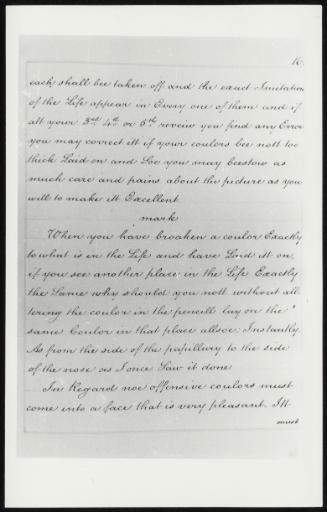 16.
each shall bee taken off and the exact Imitation
of the Life appear in Every one of them and if
att your 3rd 4th or 5th reveiw you find any Error
you may correct itt if your coulors bee nott too
thick Laid on and Soe you may bestow as
much care and pains about the picture as you
will to make itt Excellent
mark
When you have broaken a coulor Exactly
to what is in the Life and have Lard itt on
if you see another place in the Life Exactly
the Same why should you nott without all-
tering the coulor in the pencell lay on the
same Coulor in that place allsoe Instantly.
As from the side of the papillary to the side
of the nose as I once Saw it done
In Regard noe offensive coulors must
come into a face that is very pleasant. Itt
must